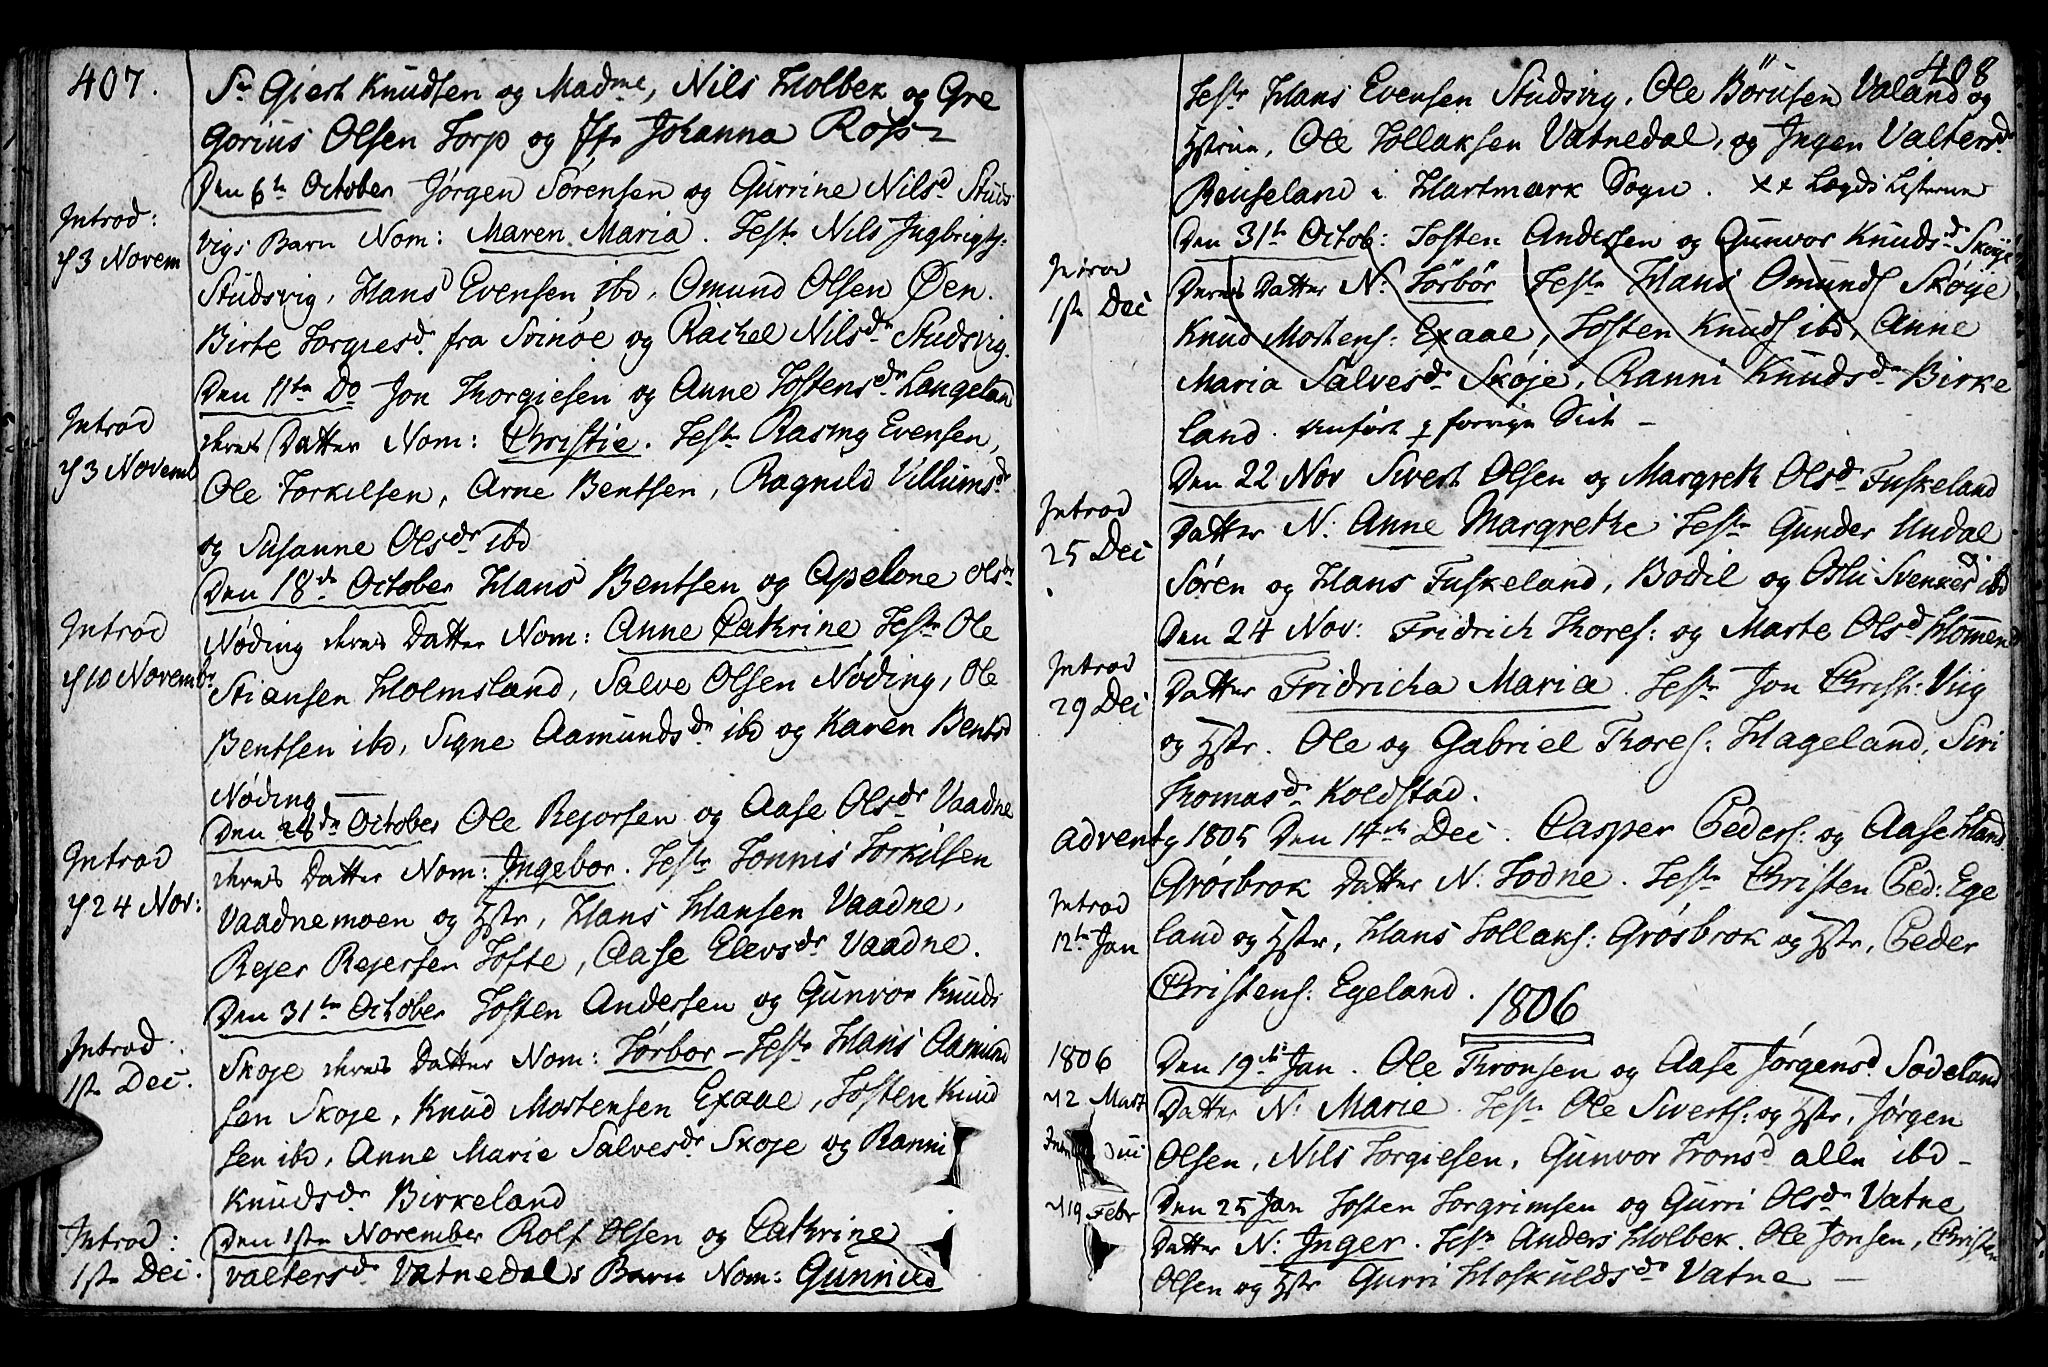 407.
Sr Giert Knudsen og Madme, Nils Holbek og Gre
gorius Olsen Torp og Jfr Johanna Ross
Den 6te October Jørgen Sørensen og Gurrine Nilsd Studs
Introd:
d 3 Novem
vigs Barn Nom: Maren Maria. Teste Nils Ingbrigts:
Studsvig, Hans Evensen ibd, Omund Olsen Øen.
Birte Torgiesdr fra Svinøe og Rachel Nilsdr Studsvig.
Den 11te Do Jon Thorgiesen og Anne Tostensdr Langeland
Introd
d 3 Novemb
deres Datter Nom: Christie. Teste Rasmg Evensen,
Ole Torkilsen, Arne Bentsen, Ragnild Villumsdr
og Susanne Olsdr ibd
Den 18de October Hans Bentsen og Apelone Olsdr
Introd
d 10 Novembr
Nøding deres Datter Nom: Anne Cathrine Teste Ole
Stiansen Holmsland, Salve Olsen Nøding, Ole
Bentsen ibd, Signe Aamundsdr ibd og Karen Bentsd
Nøding
Den 28de October Ole Rejorsen og Aase Olsdr Vaadne
Introd
d 24 Nov:
deres Datter Nom: Ingebor. Teste Tonnis Torkilsen
Vaadnemoen og Hstr, Hans Hansen Vaadne,
Rejer Rejersen Tofte, Aase Elevsdr Vaadne.
Den 31te October Tosten Andersen og Gunvor Knuds
Introd
1ste Dec.
Skoje deres Datter Nom: Torbor - Teste Hans Aamund
sen Skoje, Knud Mortensen Exaae, Tosten Knud
sen ibd, Anne Marie Salvesdr Skoje og Ranni
Knudsdr Birkeland
Introd:
1ste Dec.
Den 1ste November Rolf Olsen og Cathrine
Valtersdr Vatnedals Barn Nom: Gunnild
408
Teste Hans Evensen Studsvig, Ole Börusen Valand og
Hstrue, Ole Tollaksen Vatnedal, og Ingen Valtersdr
Reuseland i Hartmark Sogn. xx Lægds Listerne
Den 31te Octob: Tosten Andersen og Gunvor Knudsdr Skøye
Introd
1ste Dec
Deres Datter N: Törbör Teste Hans Omunds Skøye
Knud Mortens: Exaae, Tosten Knuds ibd, Anne
Maria Salvesdr Skøje, Ranni Knudsdr Birke
land. anført p forrige Side -
Den 22 Nov Sivert Olsen og Margreth Olsdr Fuskeland
Introd
25 Dec
Datter N: Anne Margrethe Teste Gunder Undal
Sören og Hans Fuskeland, Bodil og Oslu Svenkesd ibd
Den 24 Nov: Fridrich Thores: og Marte Olsd Hommen
Introd
29 Dec
Datter Fridricha Maria. Teste Jon Christ: Viig
og Hstr. Ole og Gabriel Thores: Hageland, Siri
Thomasdr Koldstad.
Adventg 1805 Den 14de Dec. Casper Peders: og Aase Hans
Grøsbrok Datter N: Todne. Teste Christen Ped: Ege
Introd
12te Jan
land og Hstr, Hans Tollaks: Grøsbrok og Hstr, Peder
Christens: Egeland.
1806
1806
Den 19de Jan. Ole Thronsen og Aase Jørgensd Sodeland
d 2 Mart
Datter N: Marie. Teste Ole Siverts: og Hstr, Jørgen
Olsen, Nils Torgiesen, Gunvor Tronsd alle ibd -
d 19 Febr
Den 25 Jan Tosten Torgrimsen og Gurri Olsdr Vatne
Datter N: Inger. Teste Anders Holbek. Ole Jonsen, Christen
Olsen og Hstr Gurri Hoskuldsdr Vatne -